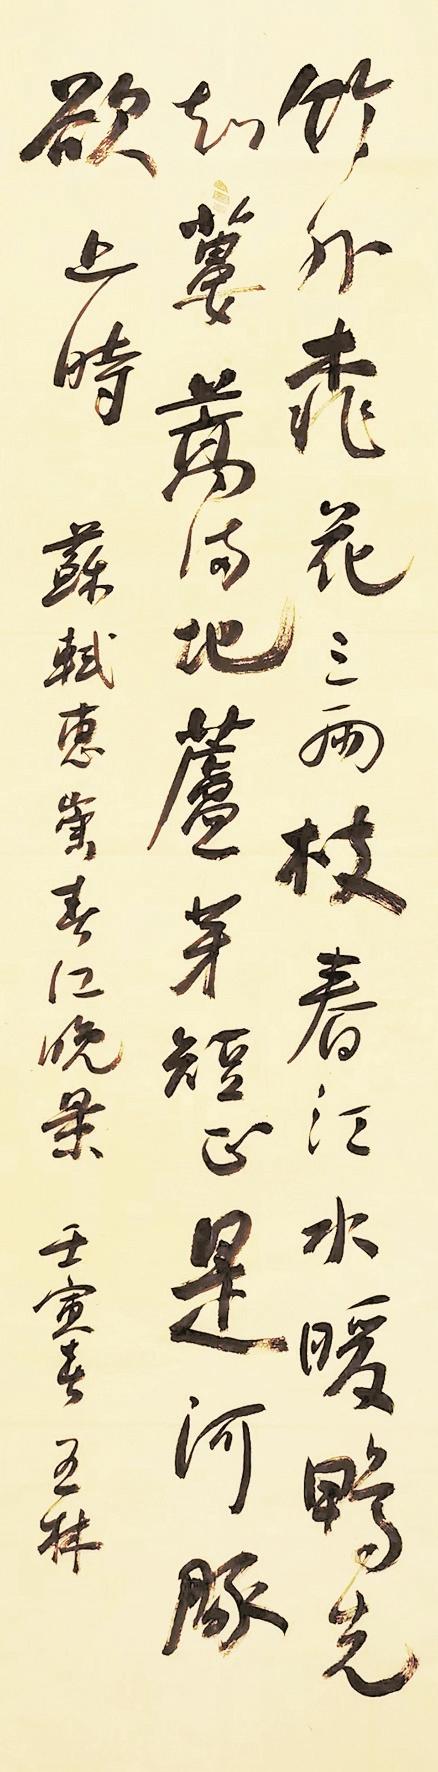 竹外桃花三兩枝春江水暖鴨先
知蔞蒿满地蘆芽短正是河豚
欲上時
蘇軾惠崇春江晚景
壬寅春 玉林